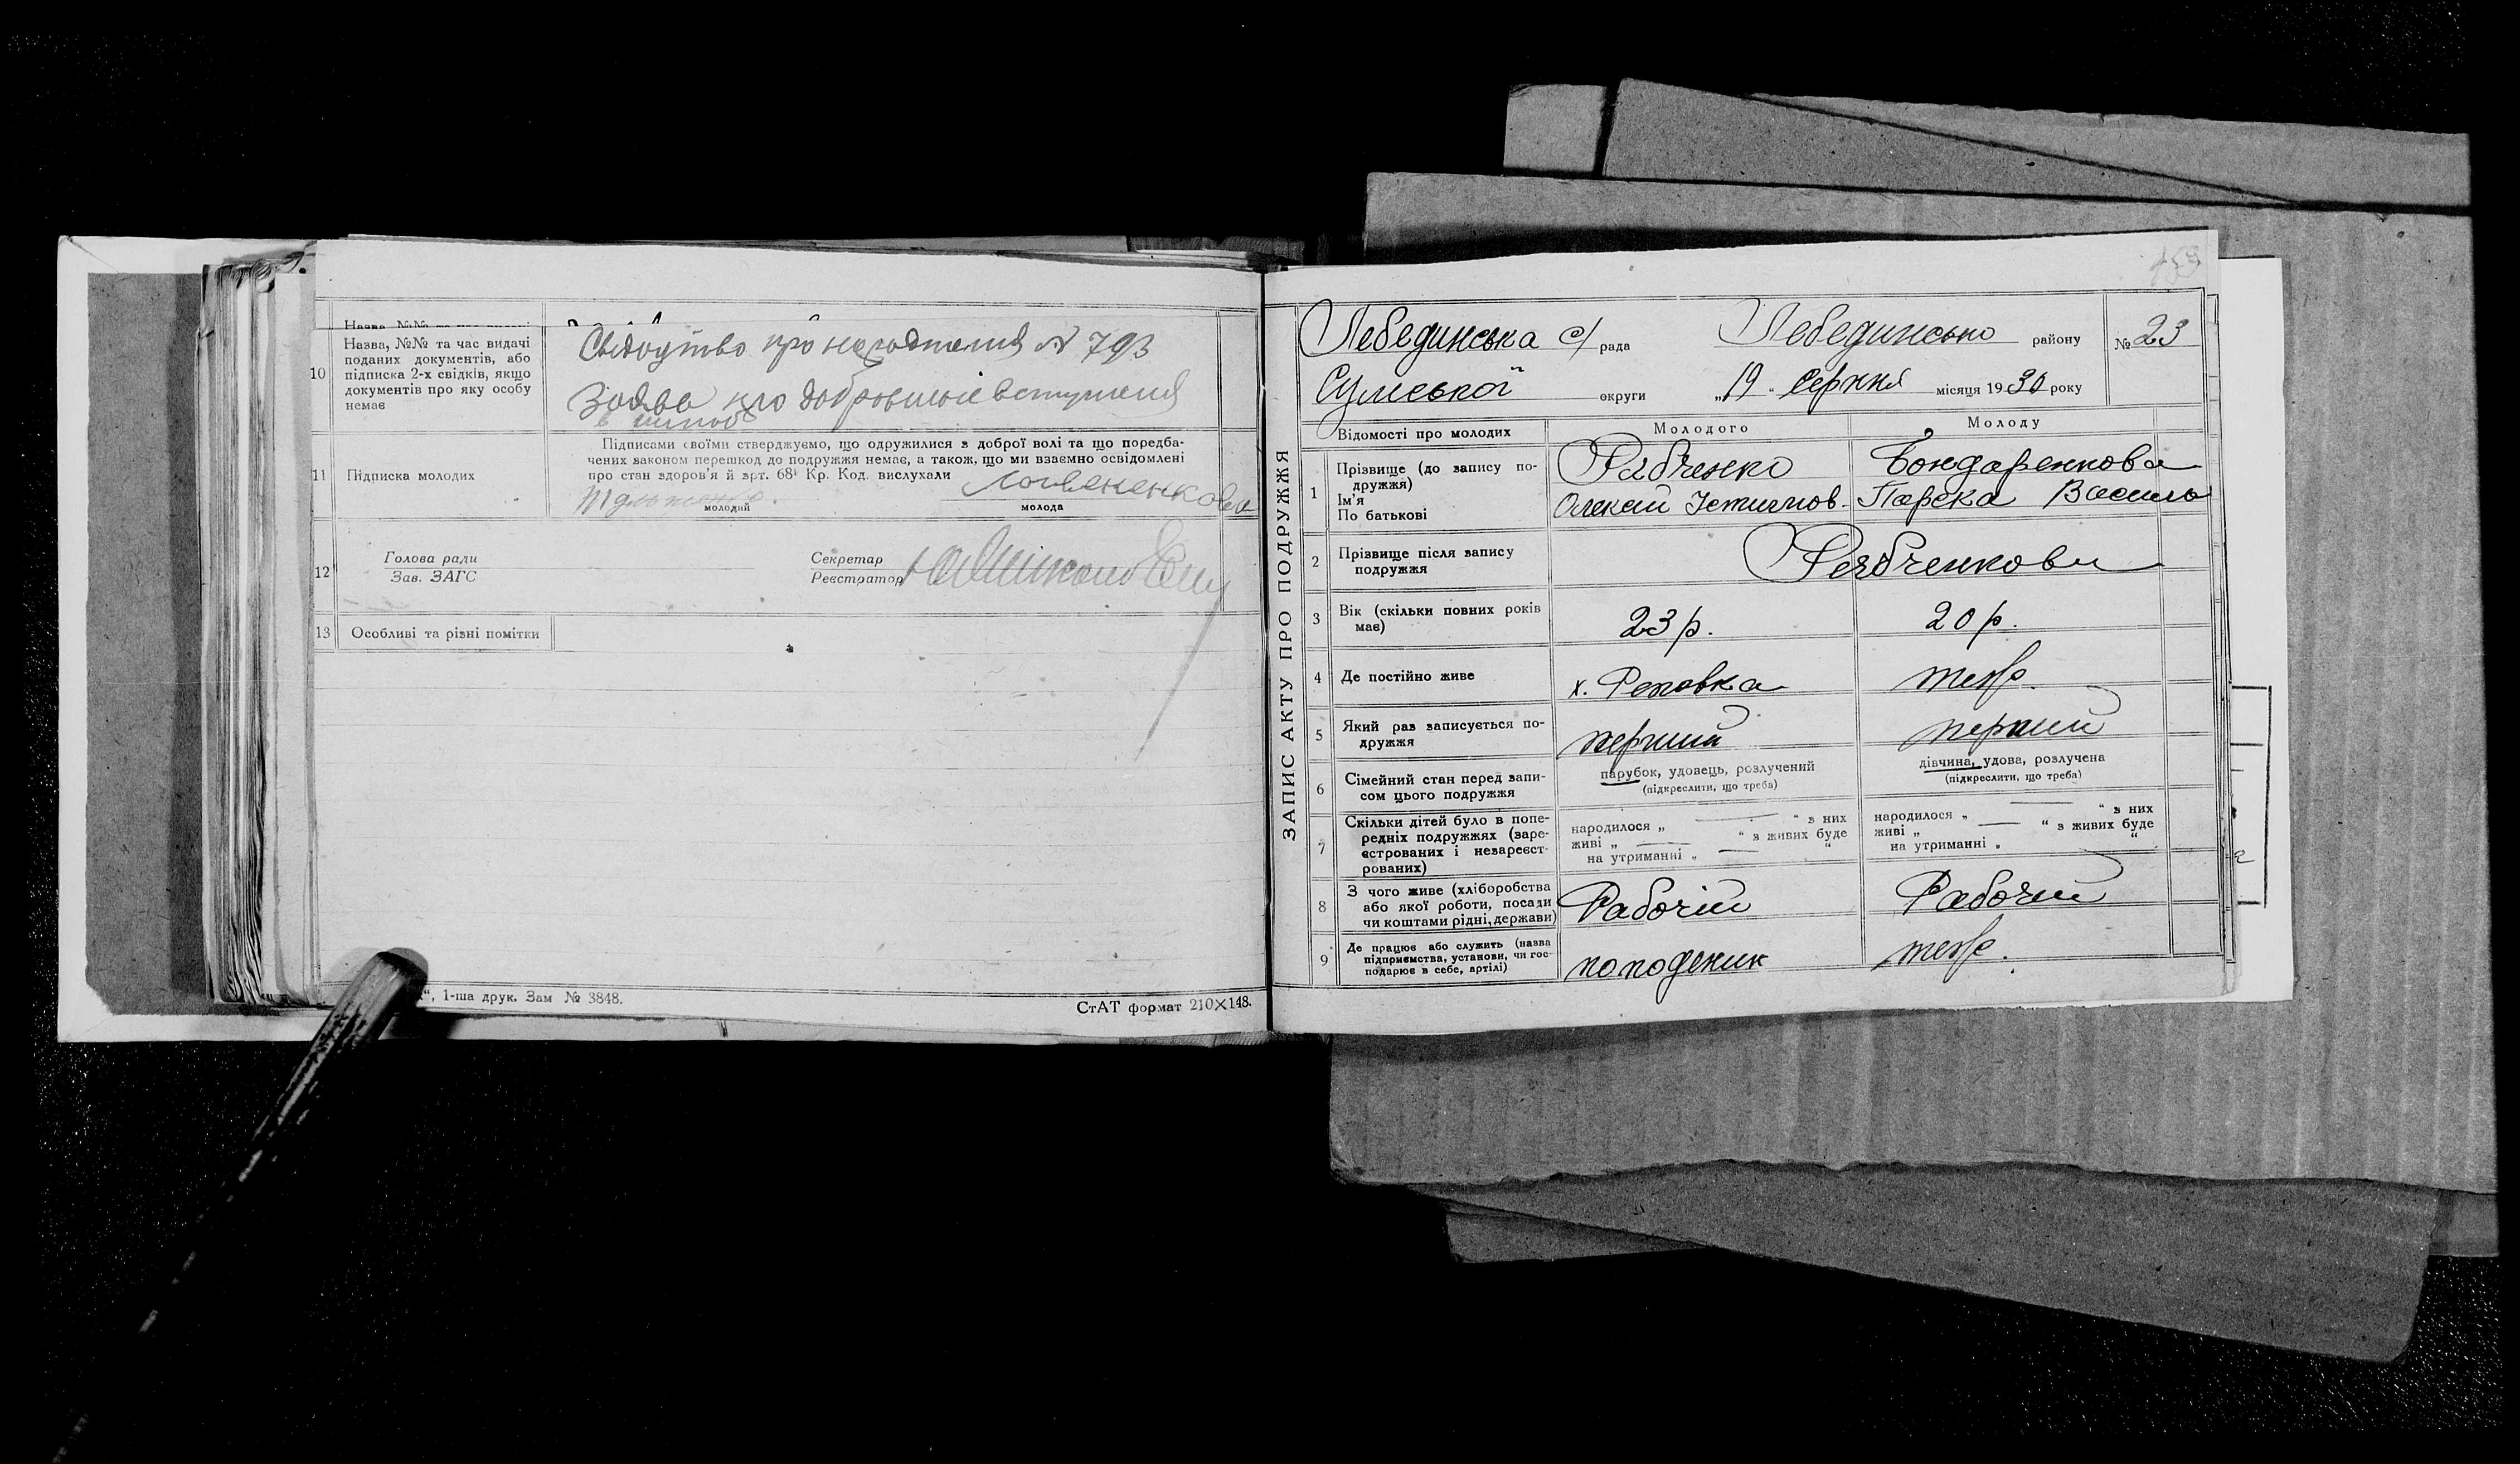 Назва, №№ та час видачі
поданих документів, або
підписка 2-х свідків, якщо
документів про яку особу
немає
10
Свідоцтво про народження № 793
Заява про добровільне вступлення
11
Підписка молодих
Підписами своїми стверджуємо, що одружилися з доброї волі та що поредба-
чених законом перешкод до подружжя немає, а також, що ми взаємно освідомлені
про стан здоров'я й арт. 68¹ Кр. Код. вислухали
Логвененкова
молодий
молода
12
Голова ради
Зав. ЗАГС
Секретар
Реєстратор
13
Особливі та різні помітки
“, 1-ша друк. Зам № 3848.
СтАТ формат 210×148.
159
ЗАПИС АКТУ ПРО ПОДРУЖЖЯ
Лебединська с/ рада Лебединсько району № 23
Сумської округи „19“ серпня місяця 1930 року
Відомості про молодих Молодого Молоду
1
Прізвище (до запису по-
дружжя)
Ім'я
По батькові
Рябченко
Олексій Устимов.
Бондаренкова
Параска Василь
2
Прізвище після запису
подружжя
Рябченкови
3
Вік (скільки повних років
має)
23 р. 20 р.
4
Де постійно живе
х. Реповка теж.
5
Який раз записується по-
дружжя
перший перший
6
Сімейний стан перед запи-
сом цього подружжя
парубок, удовець, розлучений
(підкреслити, що треба)
дівчина, удова, розлучена
(підкреслити, що треба)
7
Скільки дітей було в попе-
редніх подружжях (заре-
єстрованих і незареєст-
рованих)
народилося „ — “ з них
живі „ — “ з живих буде
на утриманні „ — “
народилося „ — “ з них
живі „ — “ з живих буде
на утриманні „ “
8
З чого живе (хліборобства
або якої роботи, посади
чи коштами рідні, держави)
Рабочій Рабочий
9
Де працює або служить (назва
підприємства, установи, чи гос-
подарює в себе, артілі)
поподеник теж.